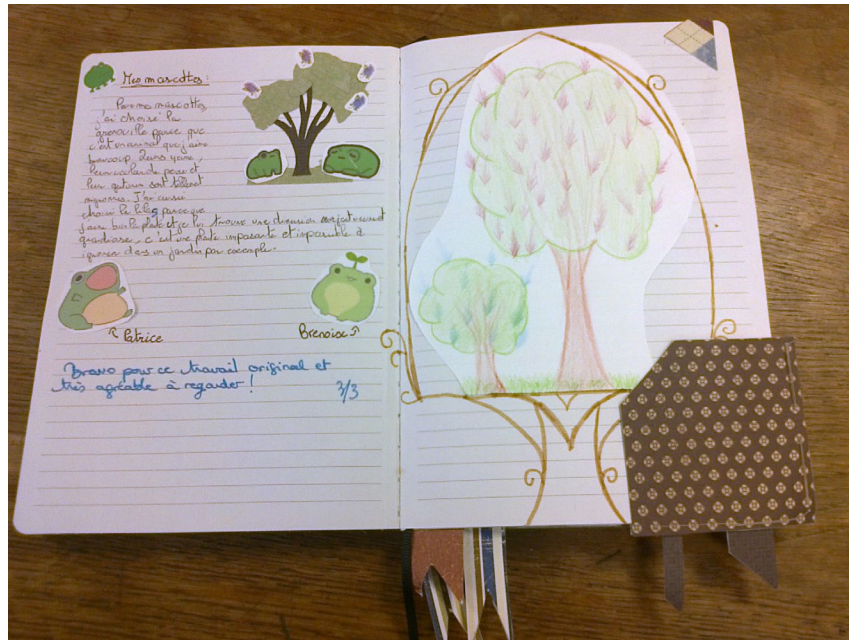 Mes mascottes :
Pour ma mascotte,
j'ai choisi la
grenouille parce que
c'est un animal que j'aime
beaucoup. Leurs yeux,
leur couleur de peau et
leur
mignonnes. J'ai aussi
choisi le lilas parce que
j'aime bien la plante et je lui trouve une dimension
grandiose, c'est une plante imposante et impossible à
ignorer dans un jardin par exemple.
Patrice
Brenoise
Bravo pour ce travail original et
très agréable à regarder !
3/3